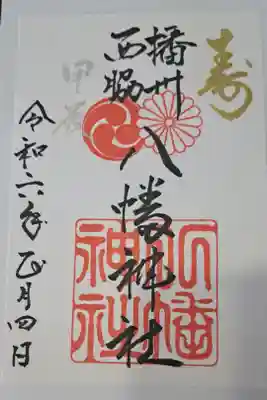 寿
播州
西脇
甲辰
八幡神社
八幡
神社
令和六年正月四日